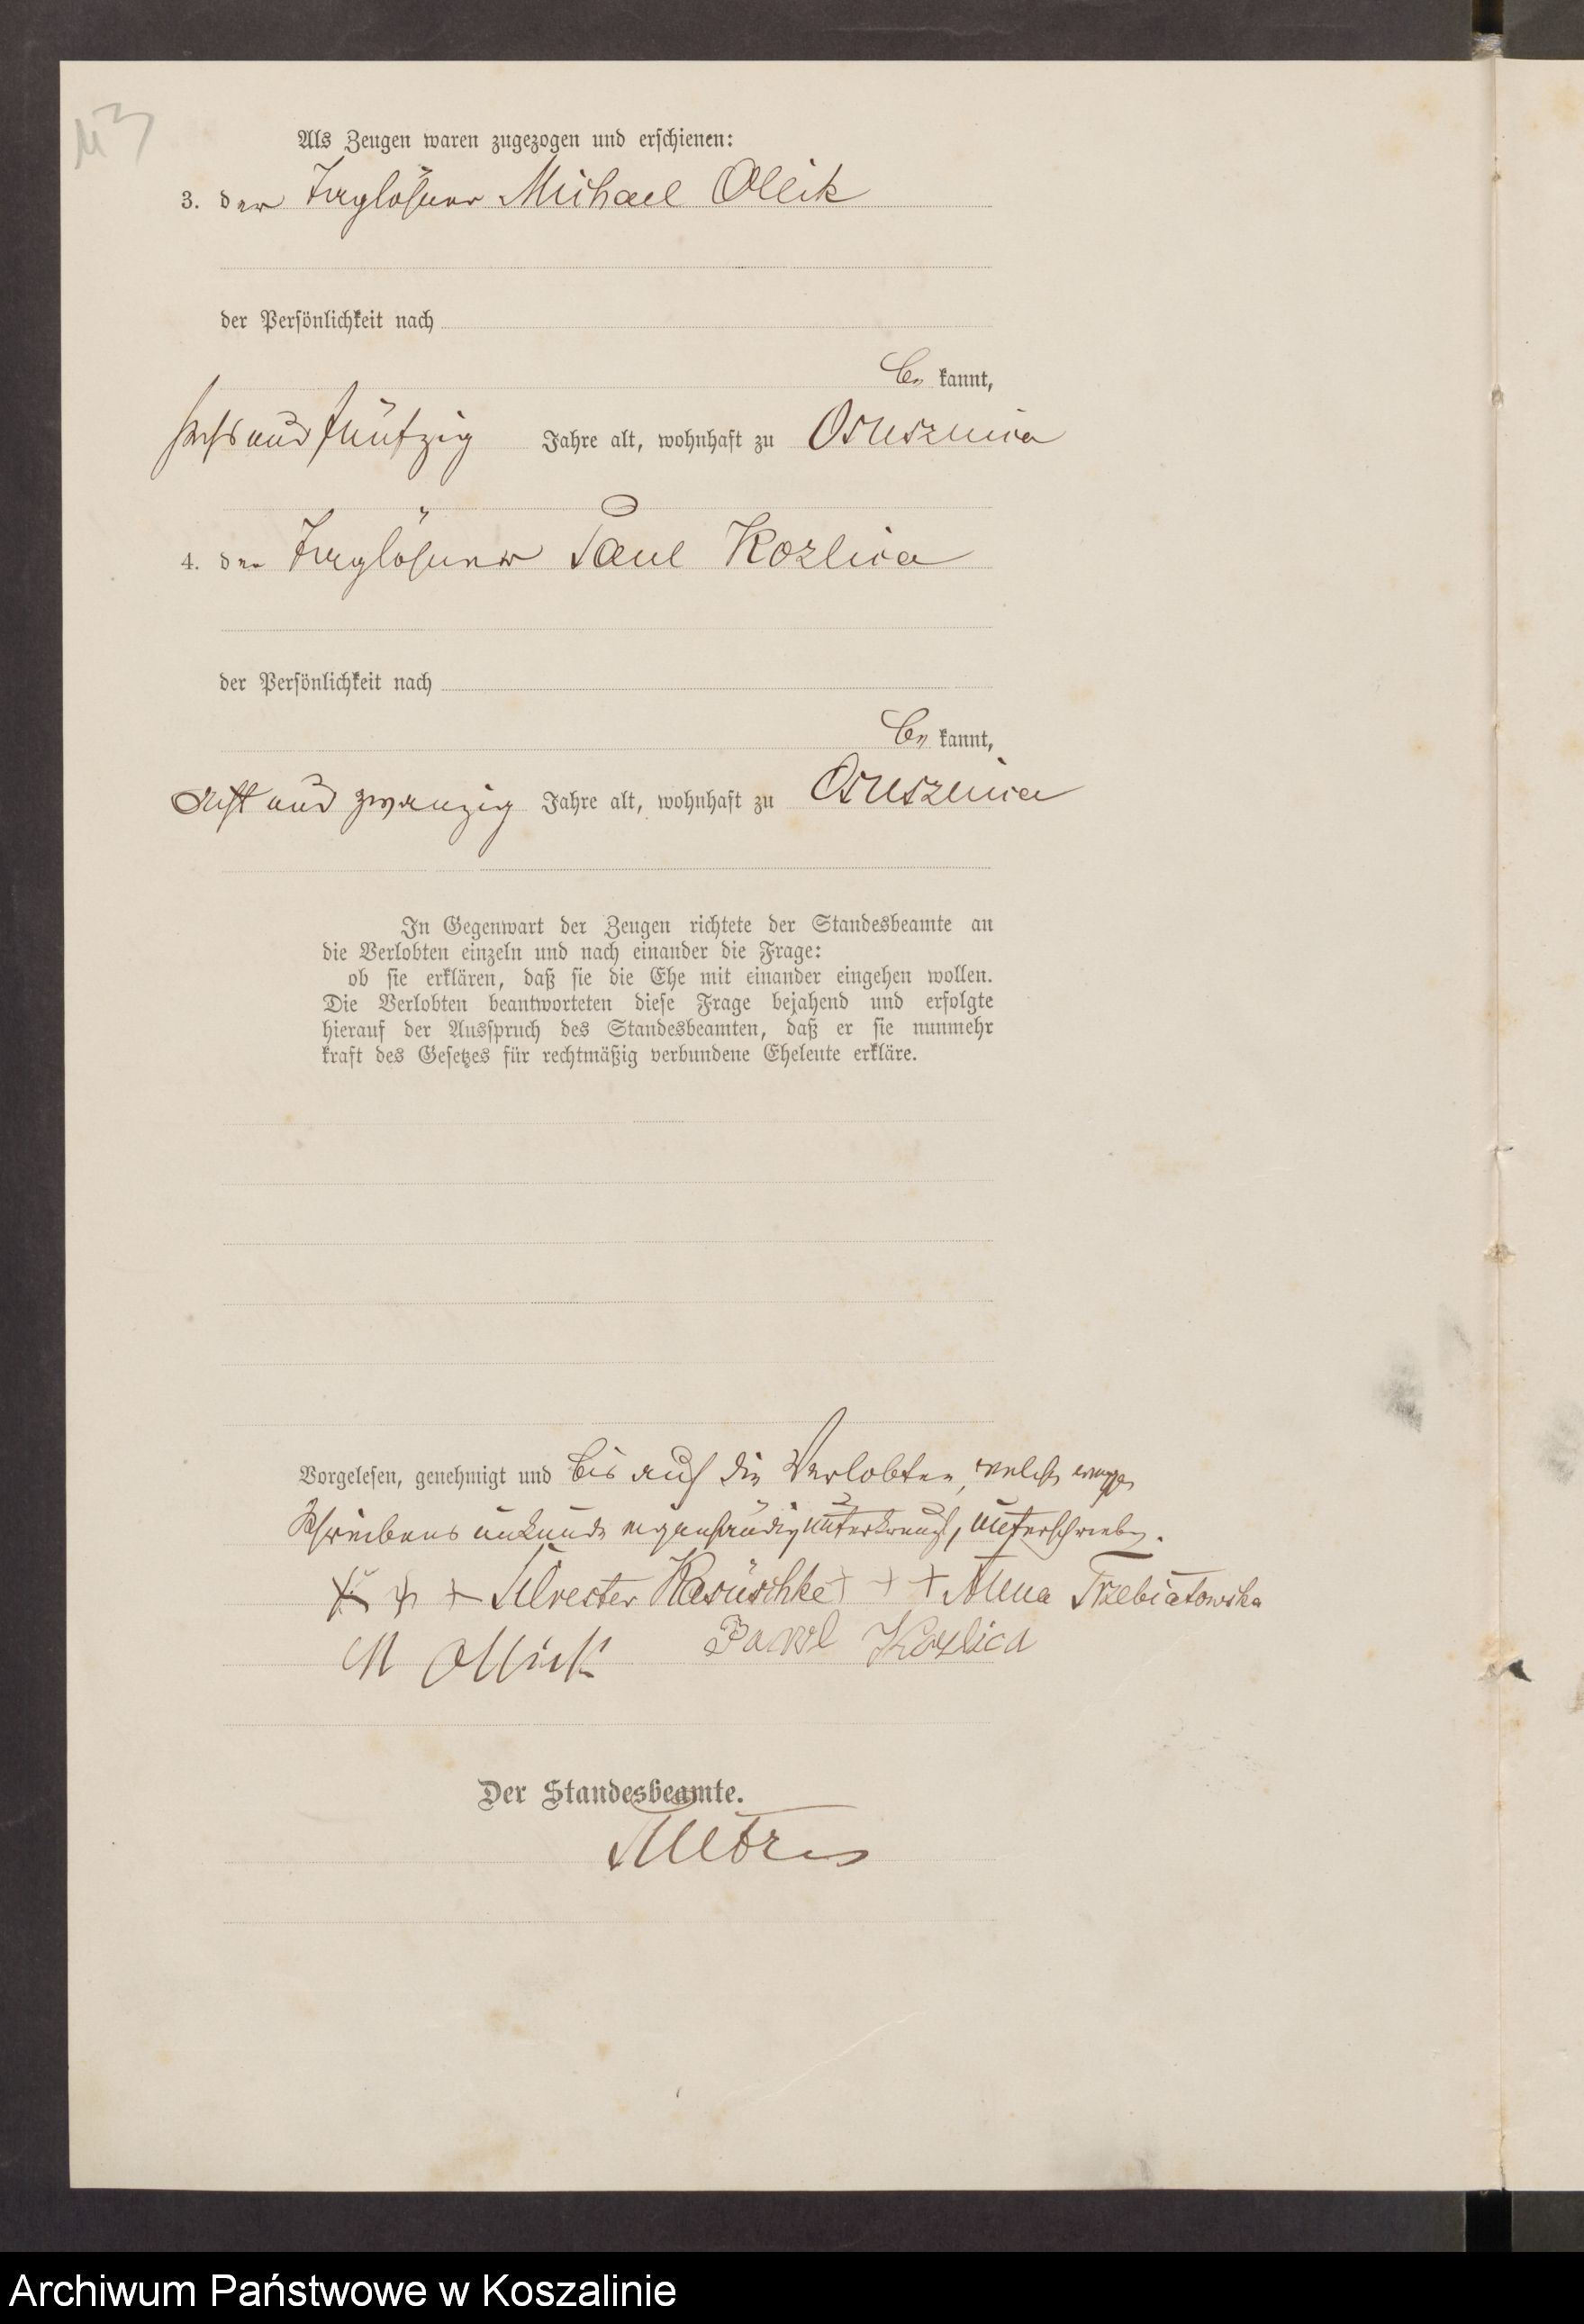 113
Als Zeugen waren zugezogen und erschienen:
3. der Tagelöhner Michael Ollik
der Persönlichkeit nach
be kannt,
sechs und fünfzig Jahre alt, wohnhaft zu Osusznica
4. der Tagelöhner Paul Kozlica
der Persönlichkeit nach
be kannt,
acht und zwanzig Jahre alt, wohnhaft zu Osusznica
In Gegenwart der Zeugen richtete der Standesbeamte an
die Verlobten einzeln und nach einander die Frage:
ob sie erklären, daß sie die Ehe mit einander eingehen wollen.
Die Verlobten beantworteten diese Frage bejahend und erfolgte
hierauf der Ausspruch des Standesbeamten, daß er sie nunmehr
kraft des Gesetzes für rechtmäßig verbundene Eheleute erkläre.
Vorgelesen, genehmigt und bis auf die Verlobten, welche wegen
Schreibens unkunde eigenhändig unterkreuzt, unterschrieben.
+ + + Silvester Kasüschke + + + Anna Trzebiatowska
M Ollick Pawel Kozlica
Der Standesbeamte.
Archiwum Państwowe w Koszalinie